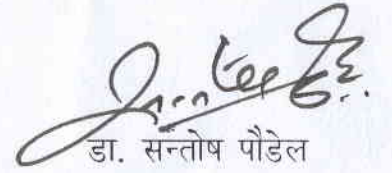 डा. सन्तोष पौडेल